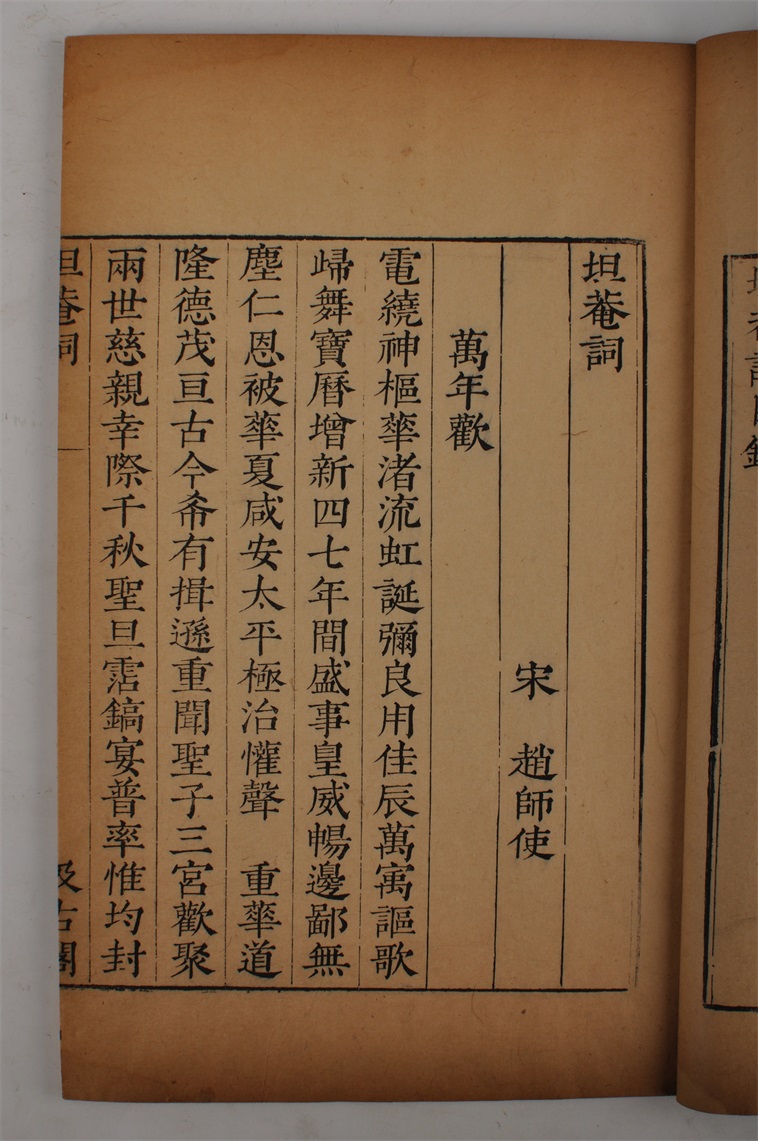 坦菴詞
宋　趙師使
萬年歡
電繞神樞華渚流虹誕彌良用佳辰萬寓謳歌
歸舞寶曆增新四七年間盛事皇威暢邊鄙無
塵仁恩被華夏咸安太平極治懽聲　重華道
隆德茂亘古今希有揖遜重聞聖子三宮歡聚
兩世慈親幸際千秋聖旦霑鎬宴普率惟均封
坦菴詞　汲古閣